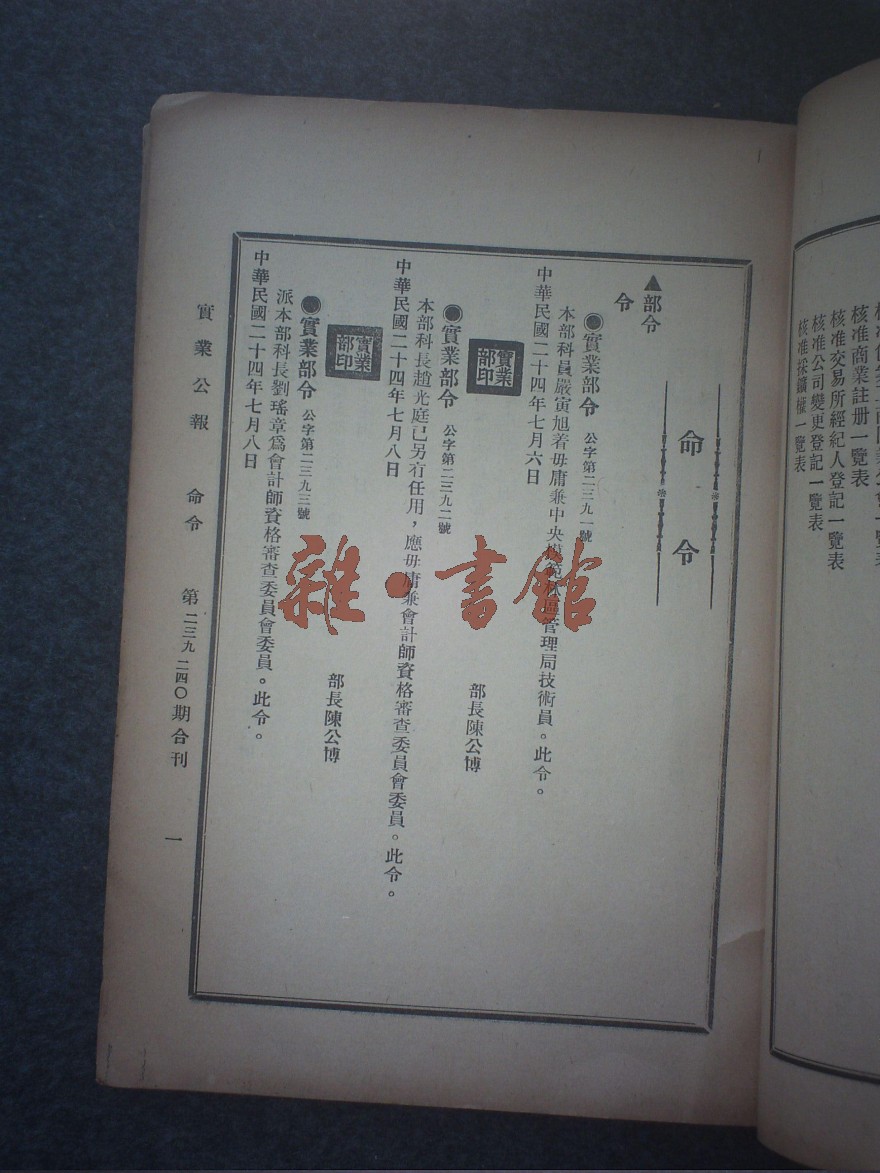 核准商業註册一覽表
核准交易所經紀人登記一覽表
核准公司變更登記一覽表
核准採鑛權一覽表
命令
▲部令
令
●實業部令 公字第二三九一號
本部科員嚴寅旭着毋庸兼中央模範林區管理局技術員。此令。
中華民國二十四年七月六日
部長陳公博
實業部印
●實業部令 公字第二三九二號
本部科長趙光庭已另有任用，應毋庸兼會計師資格審查委員會委員。此令。
中華民國二十四年七月八日
部長陳公博
實業部印
●實業部令 公字第二三九三號
派本部科長劉瑤章爲會計師資格審查委員會委員。此令。
中華民國二十四年七月八日
實業公報 命令 第二三九二四〇期合刊 一
雜·書館